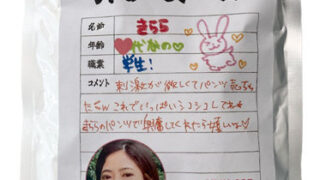 名前 きらら
年齢 ♥代なの♡
職業 学生!
コメント 刺激が欲しくてパンツ売っちゃ
たw これでいっぱいシコシコしてね
きららのパンツで興奮してくれたら嬉しいな♡